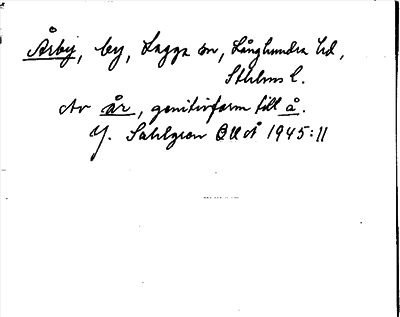 Årby, by, Lagga sn, Långhundra hd,
Sthlms l.
Av år, genitivform till å.
J. Sahlgren 1945:11